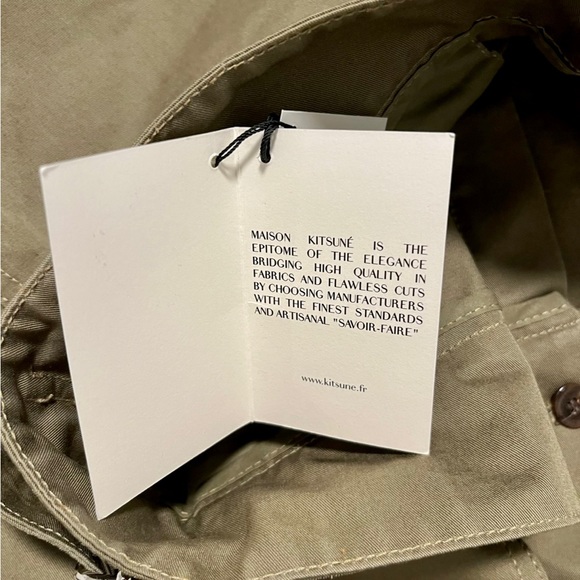 MAISON KITSUNÉ IS THE
EPITOME OF THE ELEGANCE
BRIDGING HIGH QUALITY IN
FABRICS AND FLAWLESS CUTS
BY CHOOSING MANUFACTURERS
WITH THE FINEST STANDARDS
AND ARTISANAL "SAVOIR-FAIRE"
www.kitsune.fr